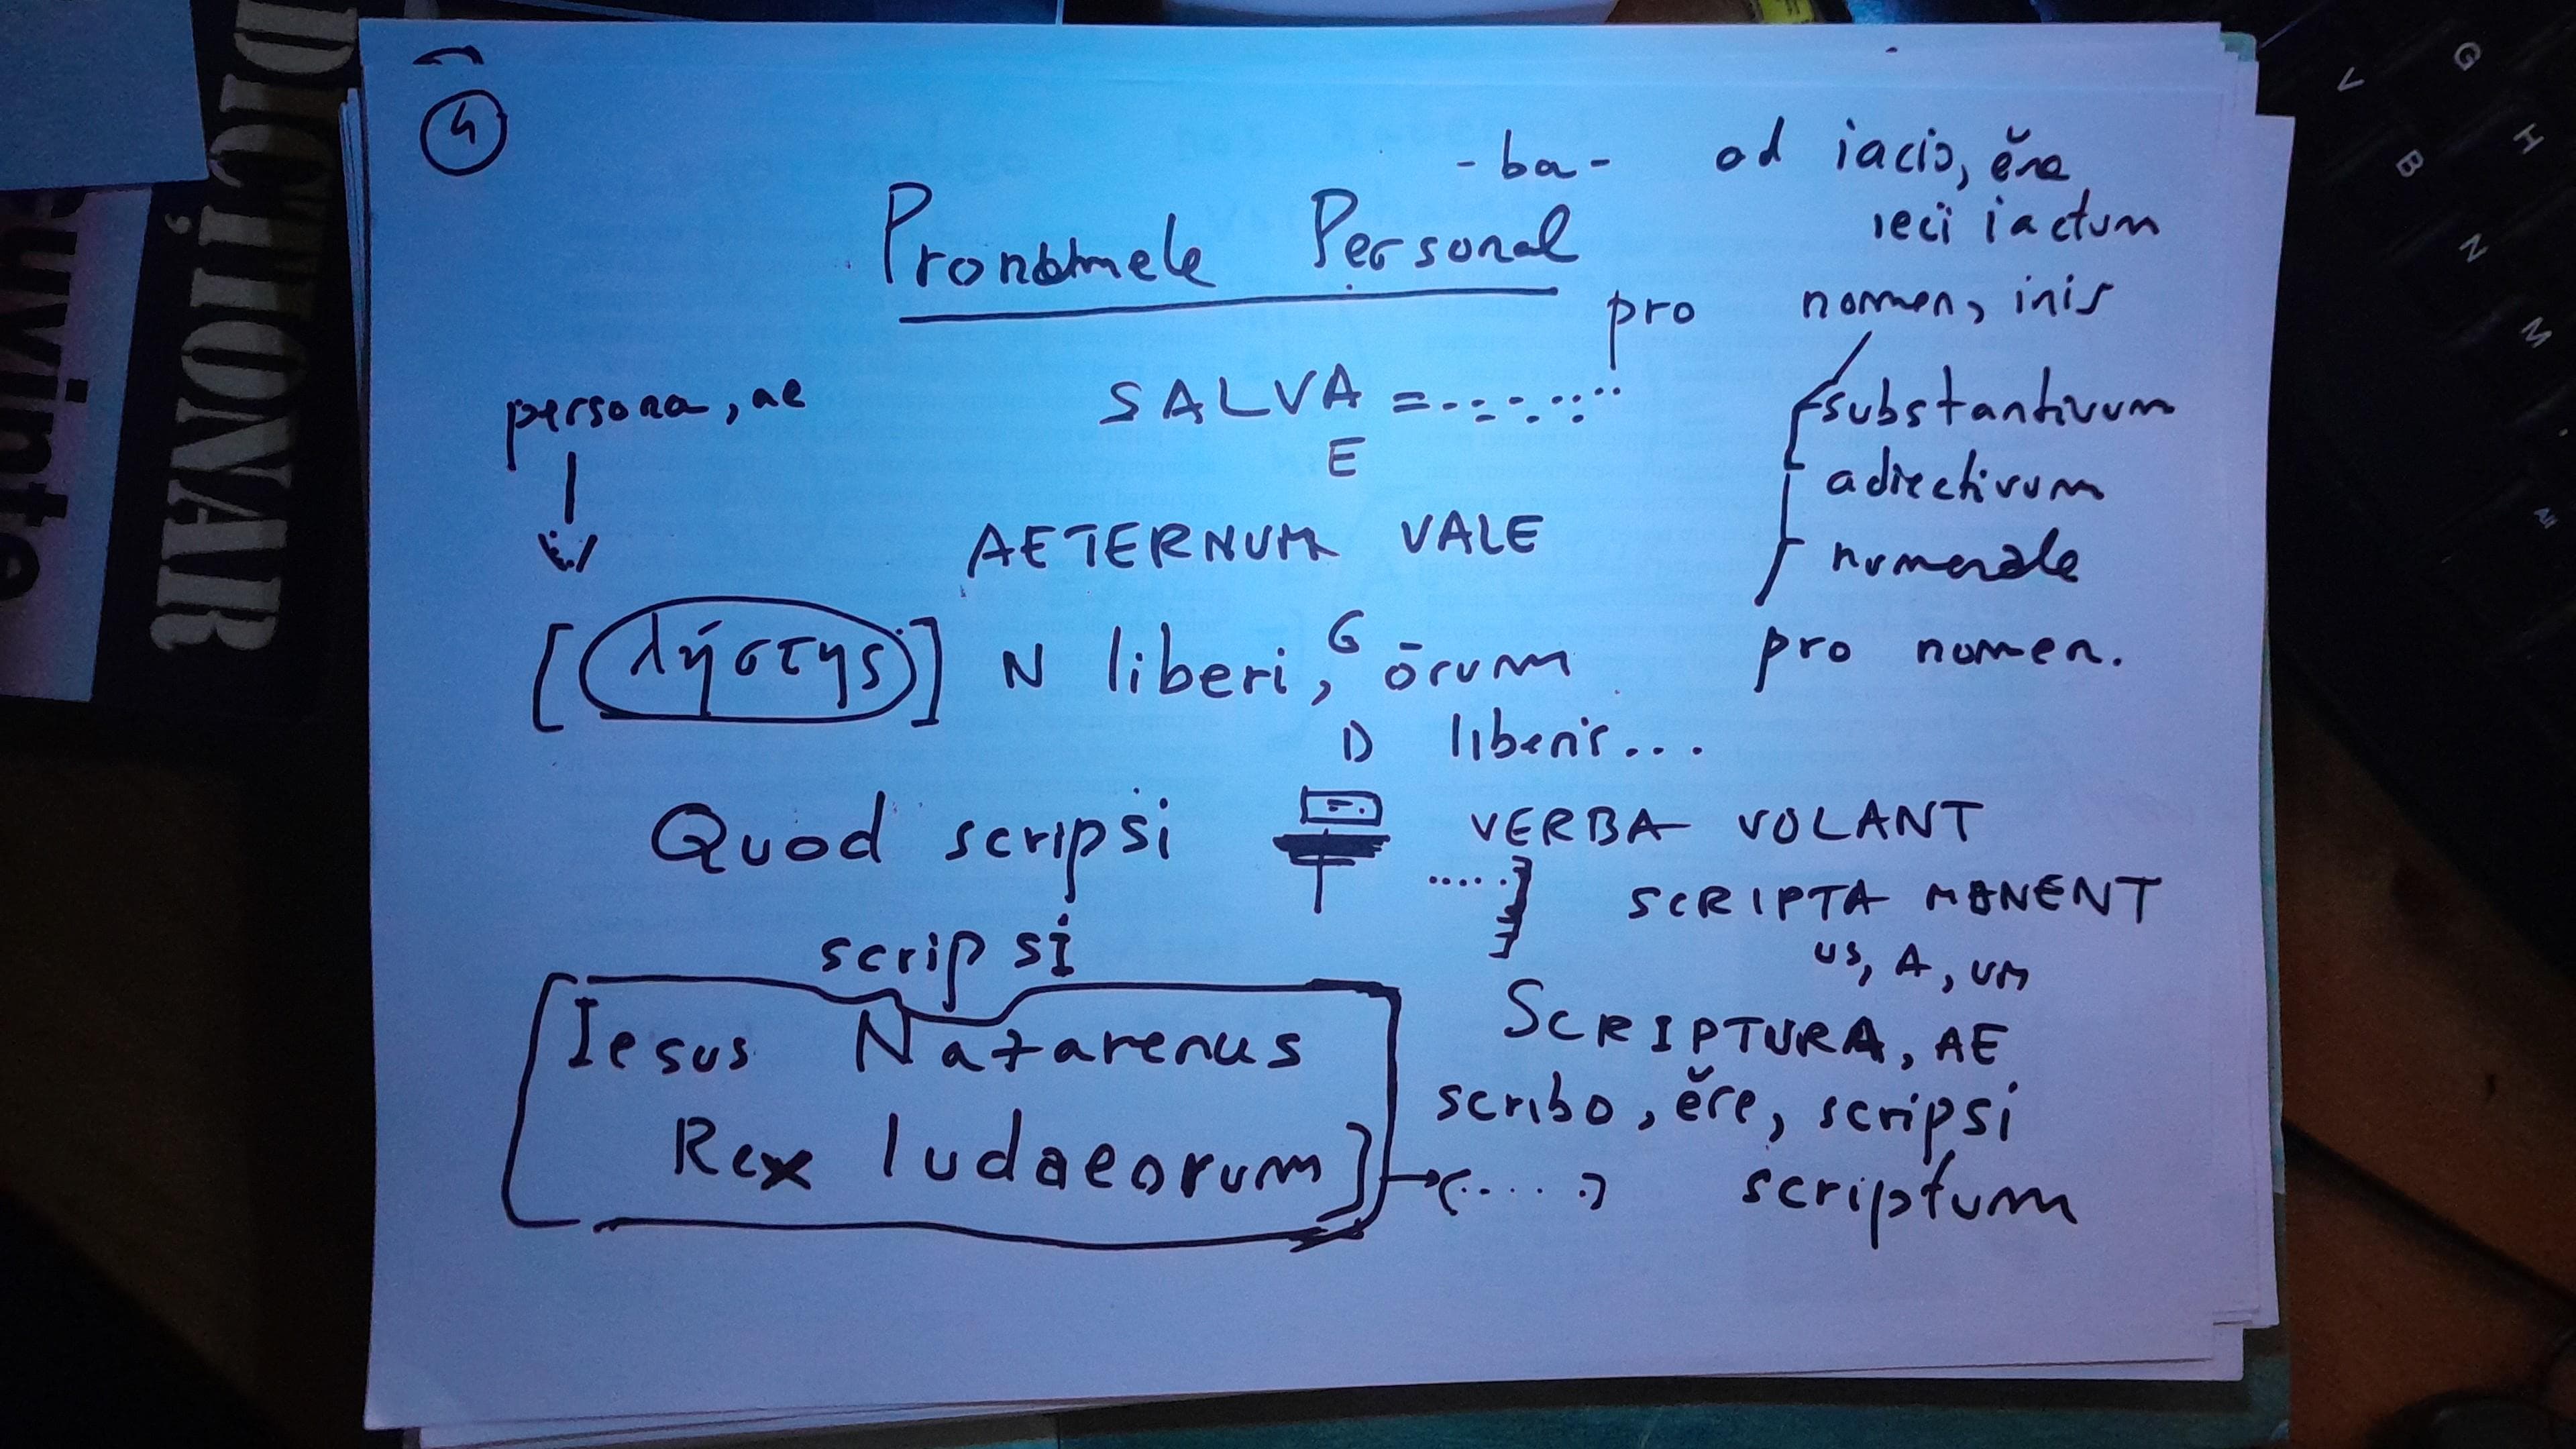 4
-ba-
ad iacio, ĕre
ieci iactum
Pronumele Personal
pro nomen, inis
persona, ae
SALVA =
E
substantivum
adiectivum
numerale
AETERNUM VALE
[λῄστης] N liberi, G ōrum
pro nomen.
D liberis...
Quod scripsi
VERBA VOLANT
scripsi
SCRIPTA MANENT
US, A, UM
Iesus Nazarenus
Rex Iudaeorum]
SCRIPTURA, AE
scribo, ĕre, scripsi
scriptum
→(.... .)
DICȚIONAR
cuvinte
G
V
H
B
N
M